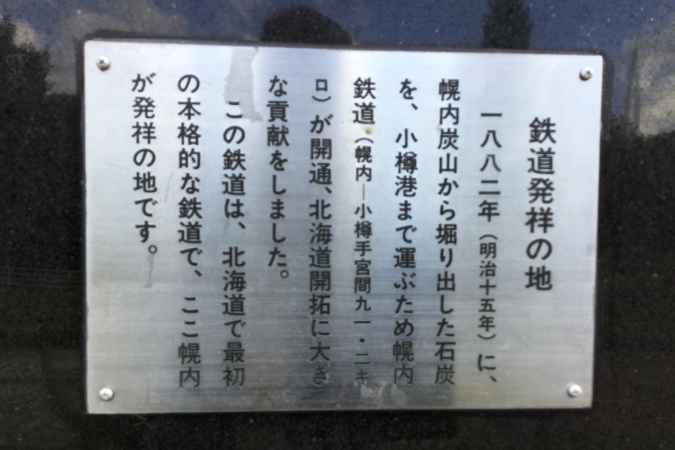 鉄道発祥の地
一八八二年（明治十五年）に、
幌内炭山から堀り出した石炭
を、小樽港まで運ぶため幌内
鉄道（幌内―小樽手宮間九一・二キ
ロ）が開通、北海道開拓に大き
な貢献をしました。
この鉄道は、北海道で最初
の本格的な鉄道で、ここ幌内
が発祥の地です。